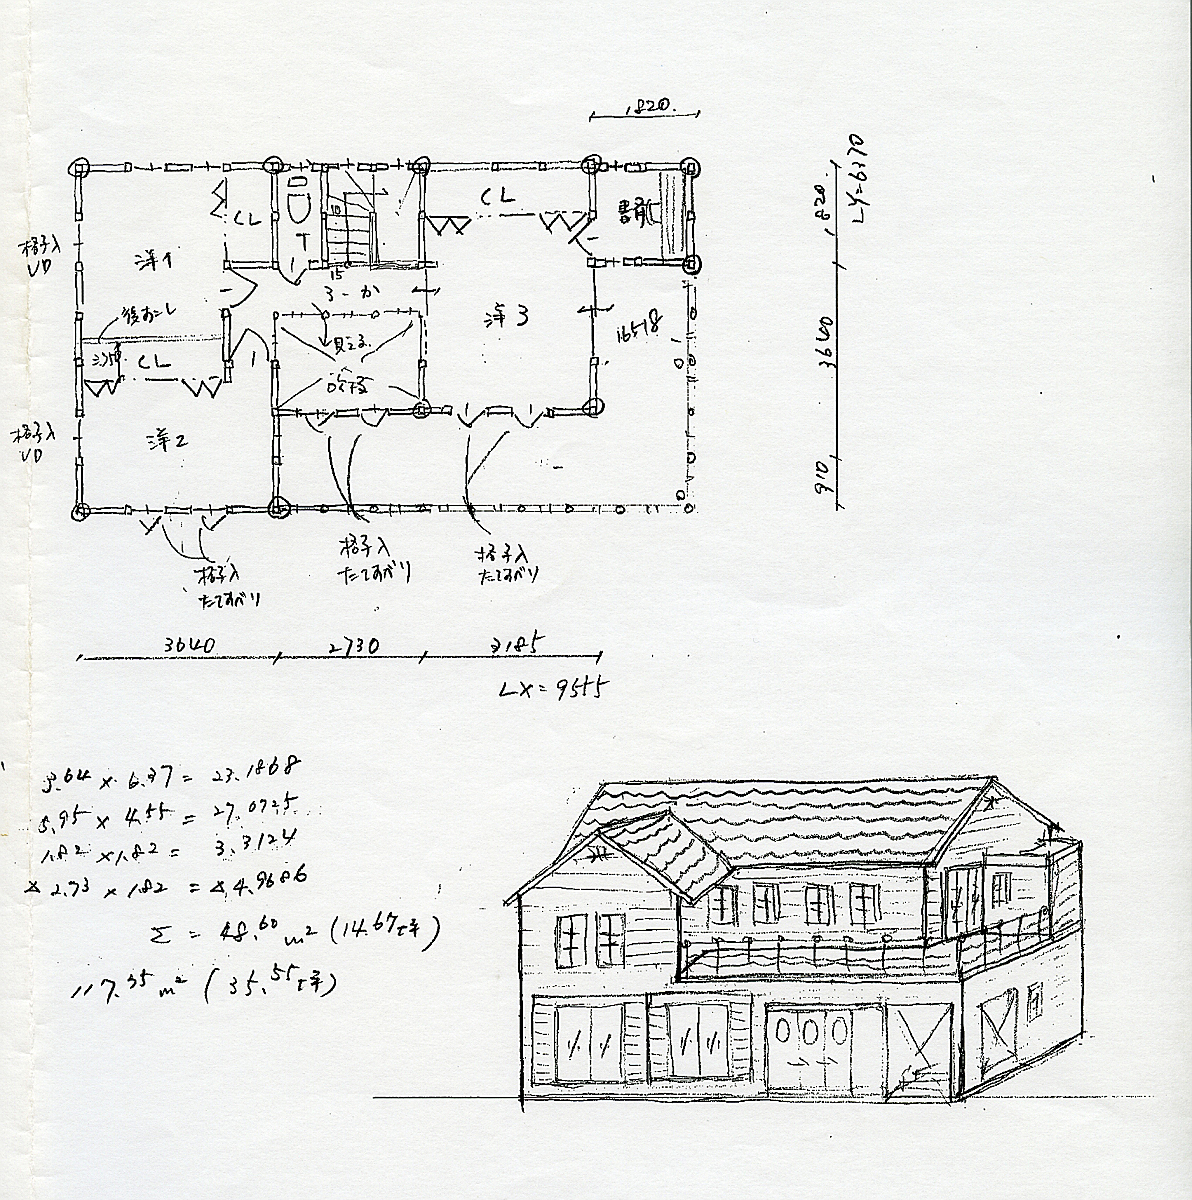 1,820.
LY=6370
1820
3640
910
格子入
VD
洋1
CL
T
10
15
CL
書斎
ろーか
洋3
16518
後おこし
CL
見える
吹抜
格子入
VD
洋2
格子入
たてすべり
格子入
たてすべり
格子入
たてすべり
3640
2730
3185
LX=9555
3.64 × 6.37 = 23.1868
5.95 × 4.55 = 27.0725
1.82 × 1.82 = 3.3124
△ 2.73 × 1.82 = △4.9686
Σ = 48.60 m² (14.67坪)
117.35 m² (35.55坪)